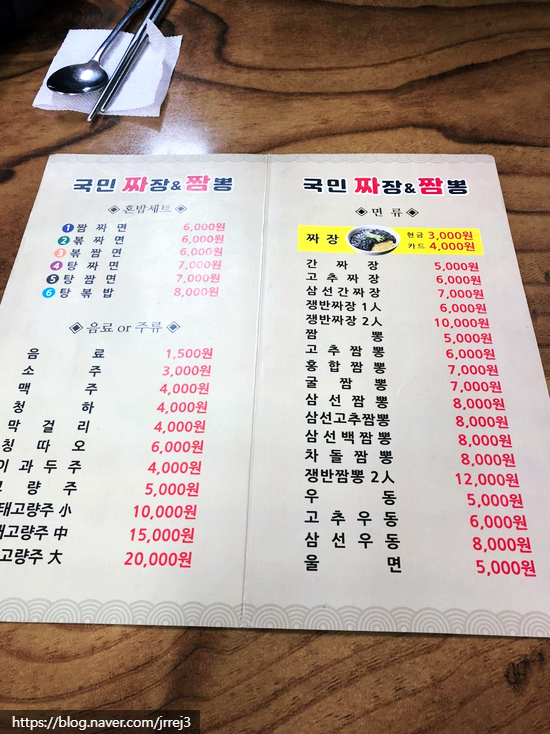 국민 짜장&짬뽕
◈ 혼밥세트 ◈
1 짬 짜 면 6,000원
2 볶 짜 면 6,000원
3 볶 짬 면 6,000원
4 탕 짜 면 7,000원
5 탕 짬 면 7,000원
6 탕 볶 밥 8,000원
◈ 음료 or 주류 ◈
음 료 1,500원
소 주 3,000원
맥 주 4,000원
청 하 4,000원
막 걸 리 4,000원
칭 따 오 6,000원
이 과 두 주 4,000원
고 량 주 5,000원
태고량주 小 10,000원
태고량주 中 15,000원
고량주 大 20,000원
국민 짜장&짬뽕
◈ 면 류 ◈
짜 장 현금 3,000원
카드 4,000원
간 짜 장 5,000원
고 추 짜 장 6,000원
삼 선 간 짜 장 7,000원
쟁반짜장 1人 6,000원
쟁반짜장 2人 10,000원
짬 뽕 5,000원
고 추 짬 뽕 6,000원
홍 합 짬 뽕 7,000원
굴 짬 뽕 7,000원
삼 선 짬 뽕 8,000원
삼선고추짬뽕 8,000원
삼 선 백 짬 뽕 8,000원
차 돌 짬 뽕 8,000원
쟁반짬뽕 2人 12,000원
우 동 5,000원
고 추 우 동 6,000원
삼 선 우 동 8,000원
울 면 5,000원
https://blog.naver.com/jrrej3